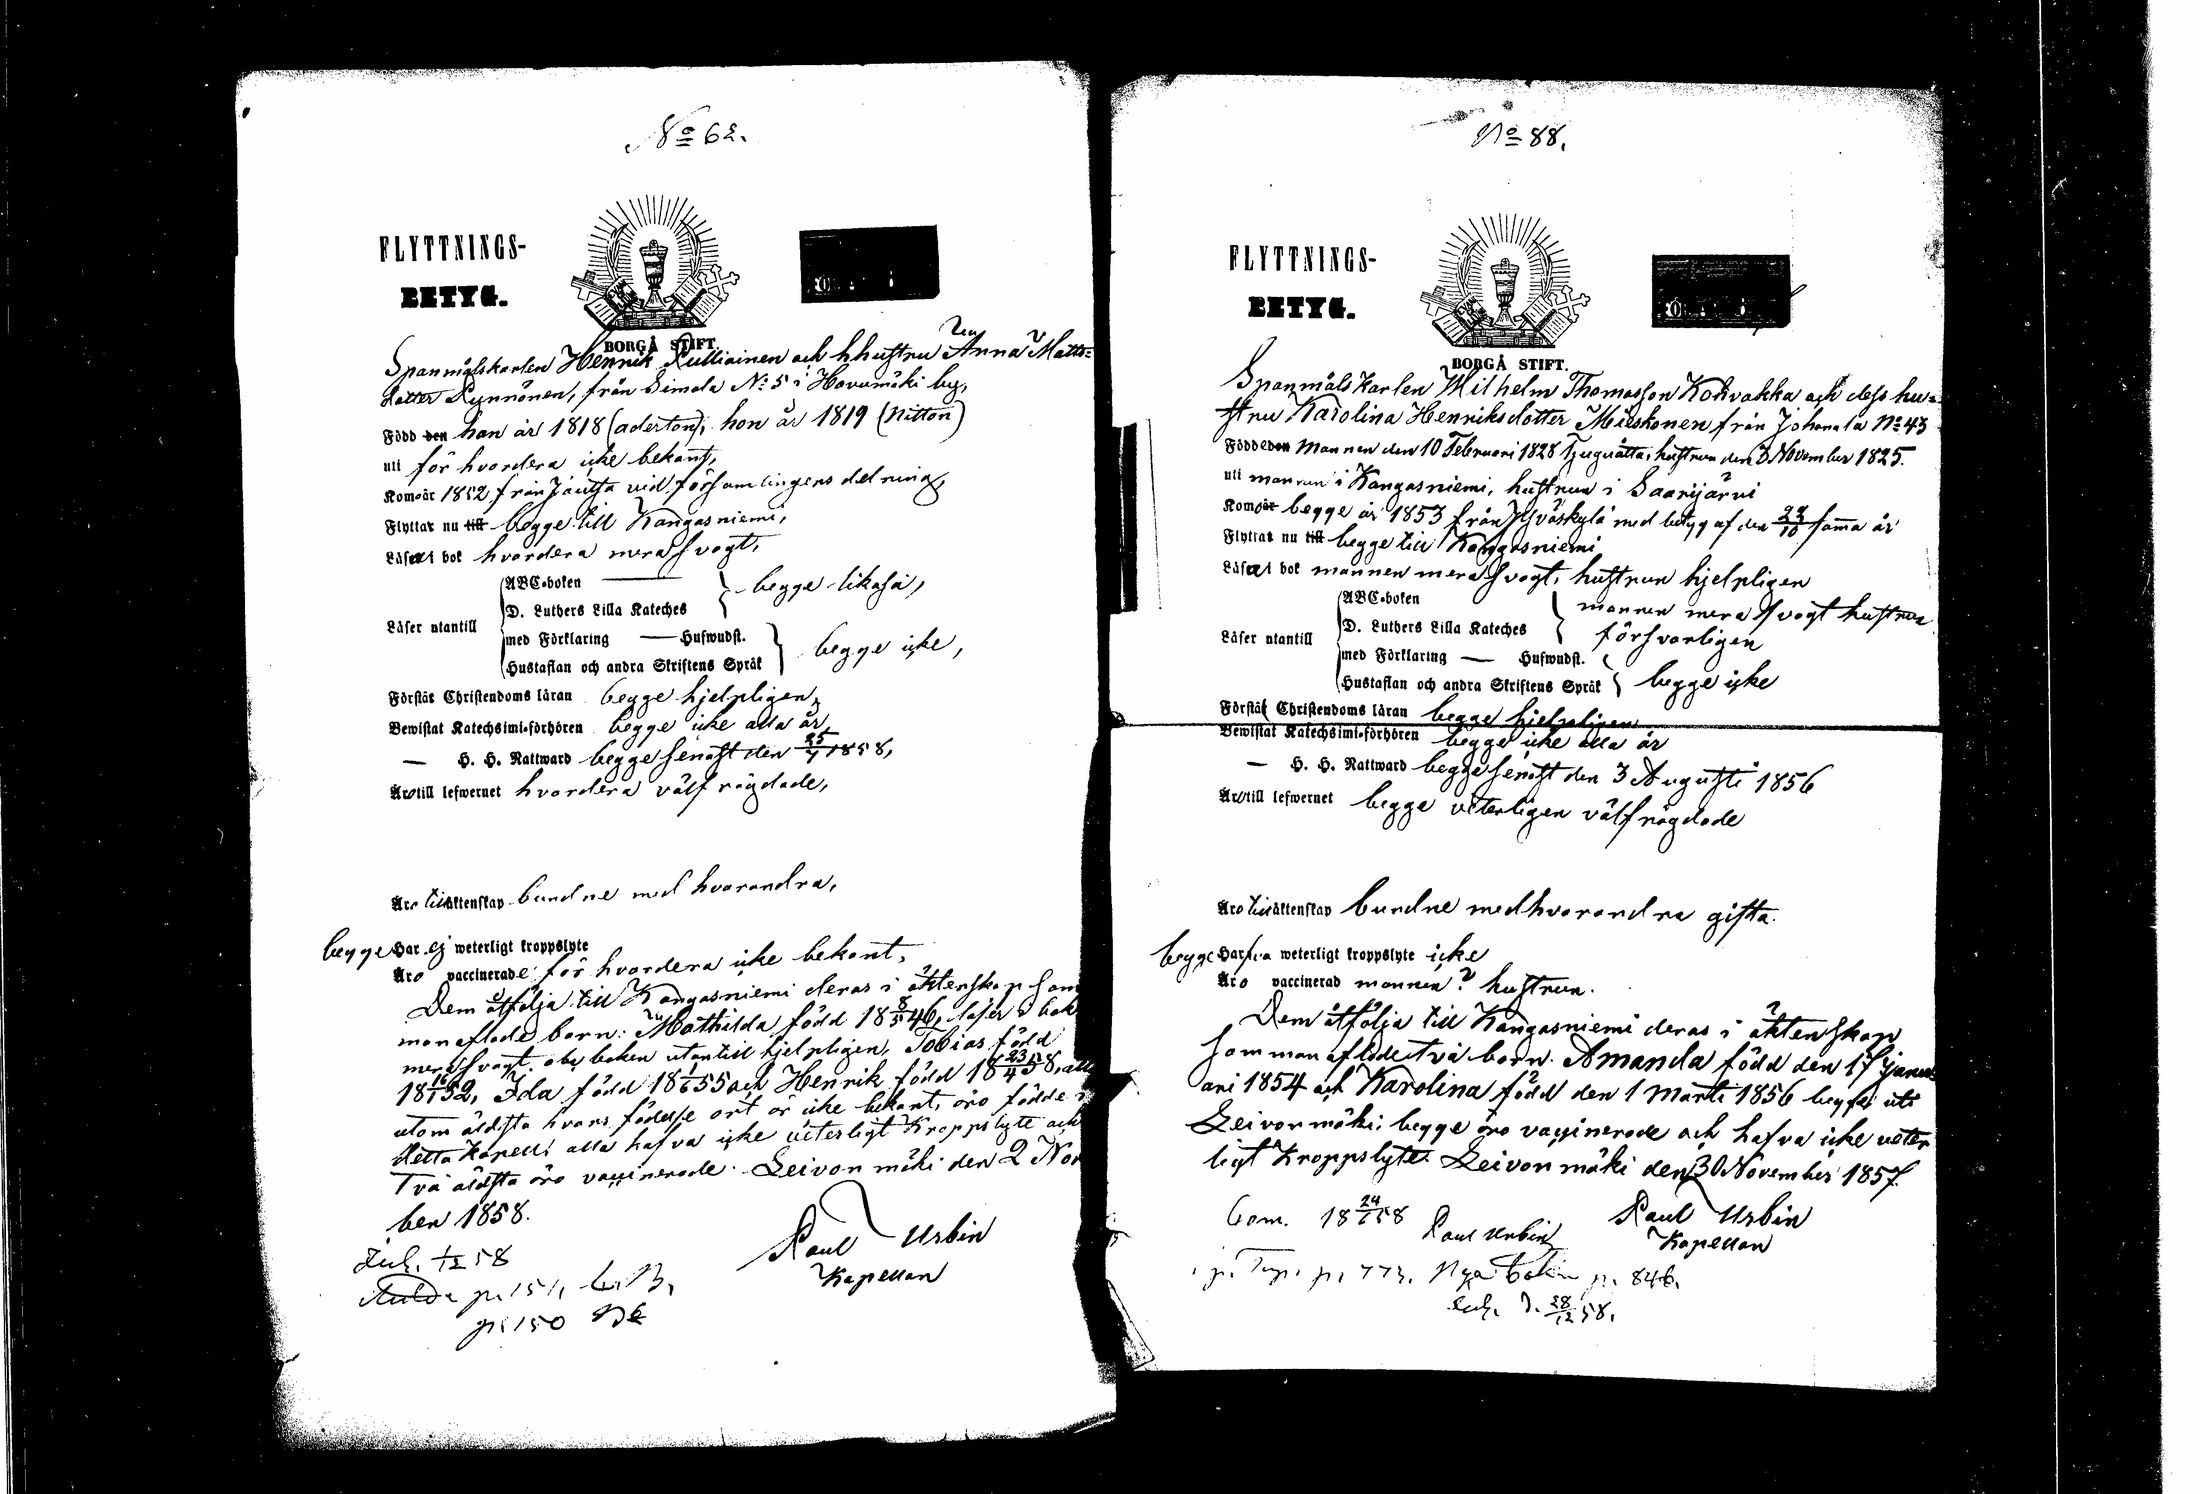 No 62.
FLYTTNINGS-
BETYG.
BORGÅ STIFT.
Spanmålskarlen Henrik Kulliainen och hhustru Anna Matts=
dotter Kynnönen, från Simola No 5 i Havumäki by,
Född den han år 1818 (aderton), hon år 1819 (nitton)
uti för hvardera icke bekant,
Kom år 1852 från Joutsa vid församlingens delning,
Flyttar nu till begge till Kangasniemi,
Läser i bok hvardera mera svagt,
ABC-boken
D. Luthers Lilla Kateches
begge likaså,
Läser utantill
med Förklaring — Hufwudst.
Hustaflan och andra Skriftens Språk
begge icke,
Förstår Christendoms läran begge hjelpligen,
Bewistat Katechismi-förhören begge icke alla år,
— H. H. Nattward begge senast den 25/7 1858,
Äro till lefwernet hvardera välfrägdade,
Äro till äktenskap bundne med hvarandra,
begge Har ej weterligt kroppslyte
Äro vaccinerade för hvardera icke bekant,
Dem åtfölja till Kangasniemi deras i äktenskap sam
manaflade barn: Mathilda född 18 8/5 46, läser i bok
mera svagt, abc boken utantill hjelpligen, Tobias född
18 16/1 52, Ida född 18 1/6 55 och Henrik född 18 23/4 58, alla
utom äldsta hvars födelse ort är icke bekant, äro födde i
detta Kapell; alla hafva icke veterligt Kroppslyte och
Två äldsta äro vaccinerade. Leivonmäki den 2 Nov
ber 1858.
Paul Urbin
Kapellan
Inh. 1/12 58
p. 151,
p. 150
No 88.
FLYTTNINGS-
BETYG.
BORGÅ STIFT.
Spanmåls Karlen Wilhelm Thomasson Kokvakka och dess hu=
stru Karolina Henriksdotter Mieskonen från Johanala No 43
Född den Mannen den 10 Februari 1828 Tjuguåtta, hustrun den 3 November 1825.
uti mannen i Kangasniemi, hustrun i Saarijärvi
Kom år begge år 1853 från Jyväskylä med betyg af den 29/10 samma år
Flyttar nu till begge till Kangasniemi
Läser i bok mannen mera svagt, hustrun hjelpligen
ABC-boken
D. Luthers Lilla Kateches
mannen mera svagt hustrun
försvarligen
Läser utantill
med Förklaring — Hufwudst.
Hustaflan och andra Skriftens Språk
begge icke
Förstår Christendoms läran begge hjelpligen
Bewistat Katechismi-förhören begge icke alla år
— H. H. Nattward begge senast den 3 Augusti 1856
Äro till lefwernet begge veterligen välfrägdade
Äro till äktenskap bundne med hvarandra gifta.
begge Hafva weterligt kroppslyte icke
Äro vaccinerad mannen? hustrun.
Dem åtfölja till Kangasniemi deras i äktenskap
sammanaflade två barn. Amanda född den 17 Janu
ari 1854 och Karolina född den 1 Marti 1856 begge uti
Leivonmäki; begge äro vaccinerade och hafva icke veter
ligt Kroppslyte Leivonmäki den 30 November 1857.
Paul Urbin
Kapellan
Paul Urbin
p. 773. Nya boken p. 846.
28/12 58.